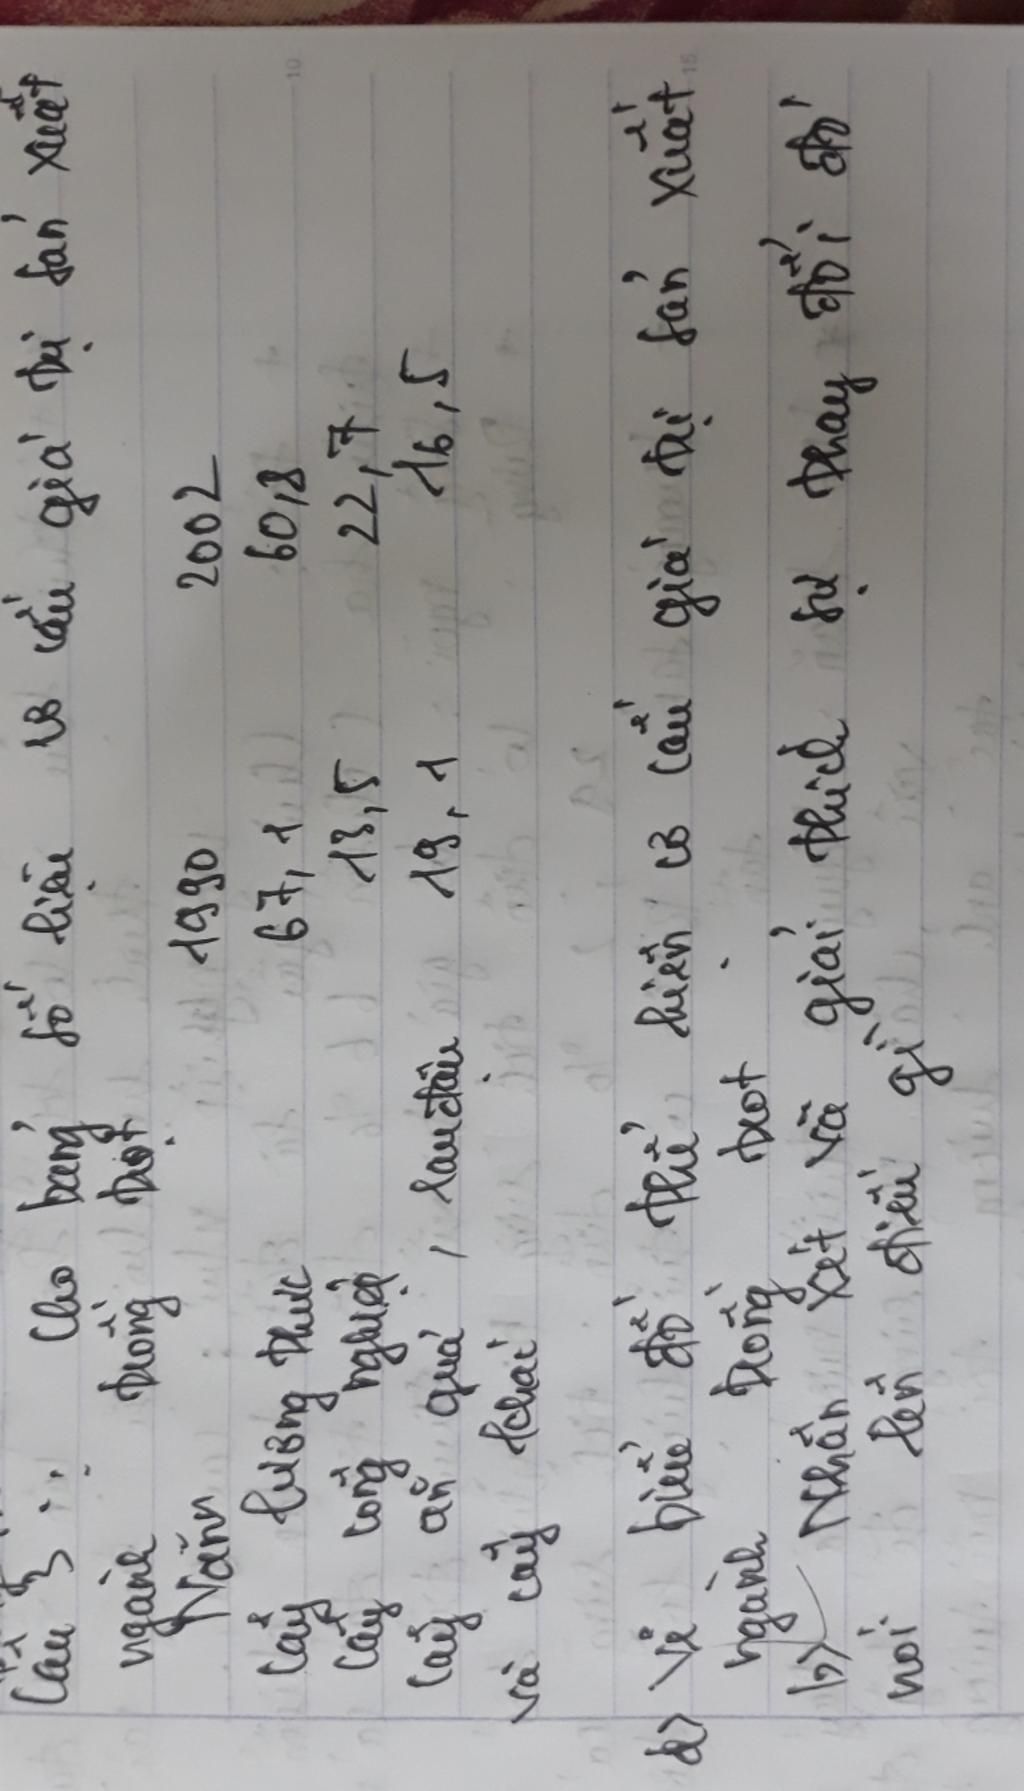 Câu 3: Cho bảng số liệu cơ cấu giá trị sản xuất
ngành trồng trọt
Năm 1990 2002
Cây lương thực 67,1 60,8
Cây công nghiệp 13,5 22,7
Cây ăn quả, rau đậu 19,1 16,5
và cây khác
a) Vẽ biểu đồ thể hiện cơ cấu giá trị sản xuất
ngành trồng trọt
b) Nhận xét và giải thích sự thay đổi đó
nói lên điều gì